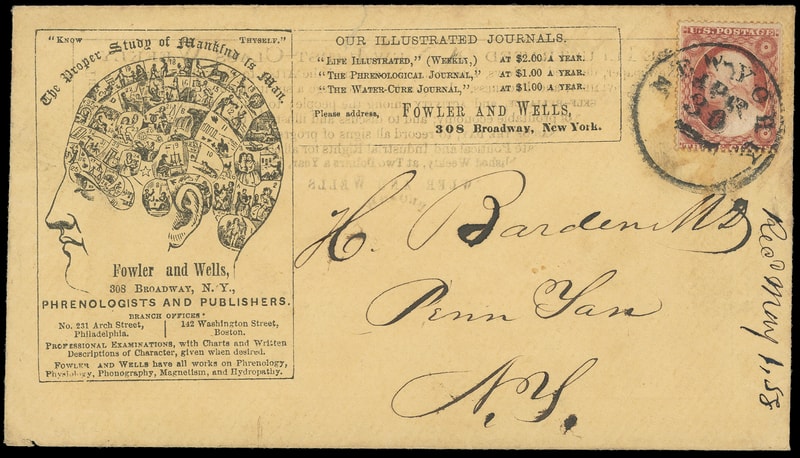 "Know Thyself."
The Proper Study of Mankind is Man.
Fowler and Wells,
308 Broadway, N. Y.,
PHRENOLOGISTS AND PUBLISHERS.
BRANCH OFFICES:
No. 231 Arch Street, Philadelphia.
142 Washington Street, Boston.
Professional Examinations, with Charts and Written
Descriptions of Character, given when desired.
Fowler and Wells have all works on Phrenology,
Physiology, Phonography, Magnetism, and Hydropathy.
OUR ILLUSTRATED JOURNALS.
"Life Illustrated," (Weekly,) at $2.00 a year.
"The Phrenological Journal," at $1.00 a year.
"The Water-Cure Journal," at $1.00 a year.
Please address, Fowler and Wells,
308 Broadway, New York.
U.S. POSTAGE
NEW-YORK
APR
30
H. Barden MD
Penn Yan
N.Y.
Recd May 1, 58